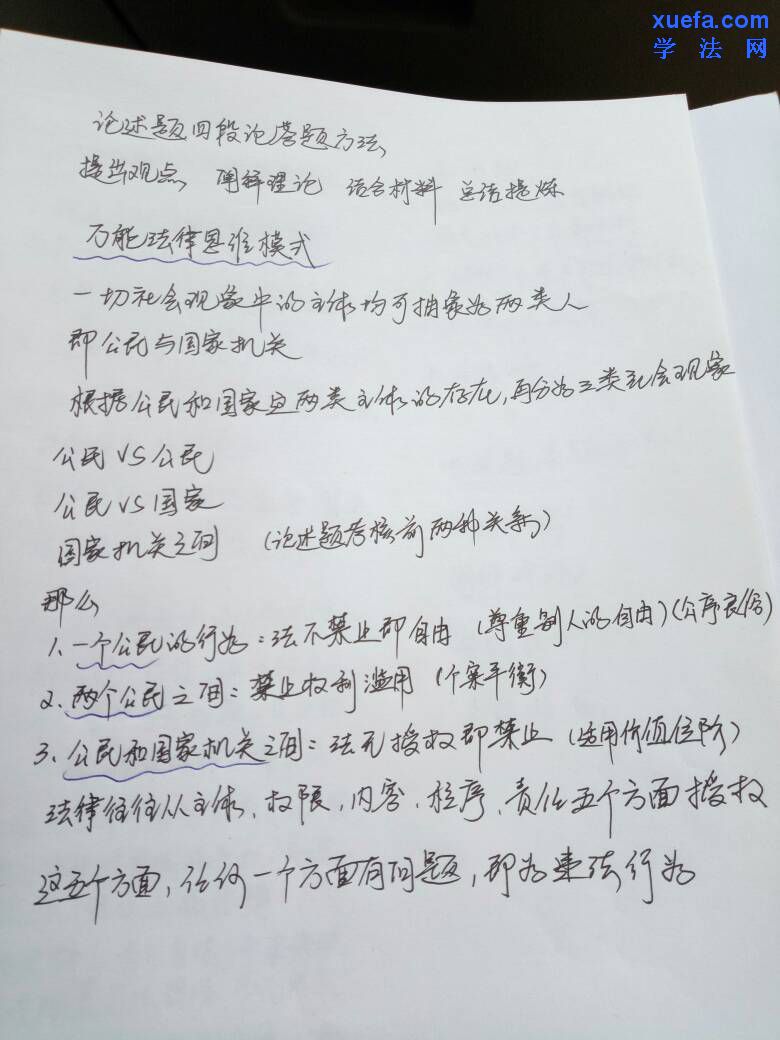 xuefa.com
学法网
论述题四段论答题方法
提出观点 阐释理论 结合材料 总结提炼
万能法律思维模式
一切社会现象中的主体均可抽象为两类人
即公民与国家机关
根据公民和国家这两类主体的存在,再分为三类社会现象
公民VS公民
公民VS国家
国家机关之间 (论述题考核前两种关系)
那么
1、一个公民的行为:法不禁止即自由 (尊重别人的自由)(公序良俗)
2、两个公民之间:禁止权利滥用 (个案平衡)
3、公民和国家机关之间:法无授权即禁止 (适用价值位阶)
法律往往从主体、权限、内容、程序、责任五个方面授权
这五个方面,任何一个方面有问题,即为违法行为